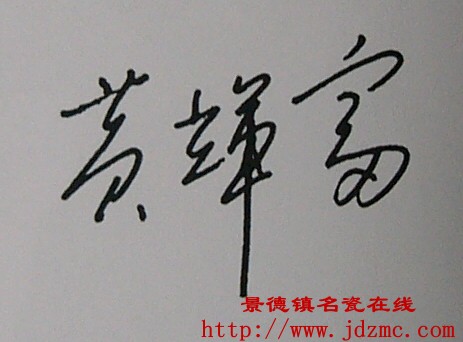 黄辉富
景德镇名瓷在线
http://www.jdzmc.com